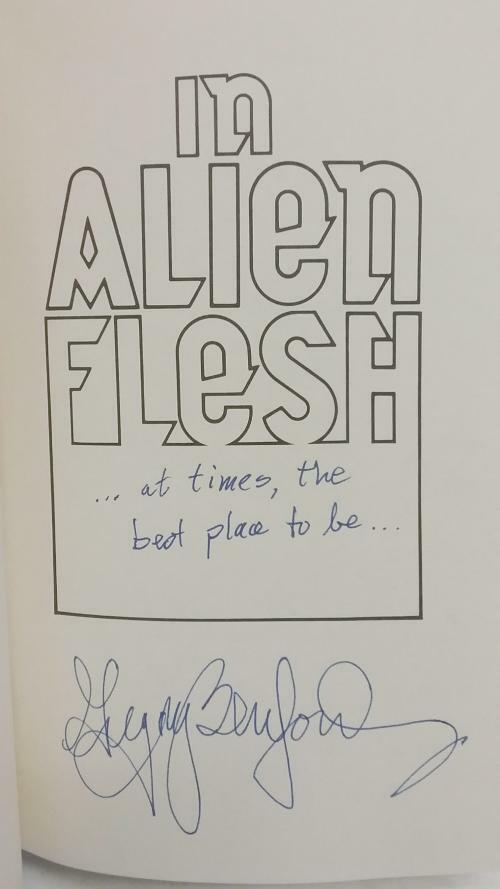 In
ALIen
FLeSH
... at times, the
best place to be...
Gregory Benford